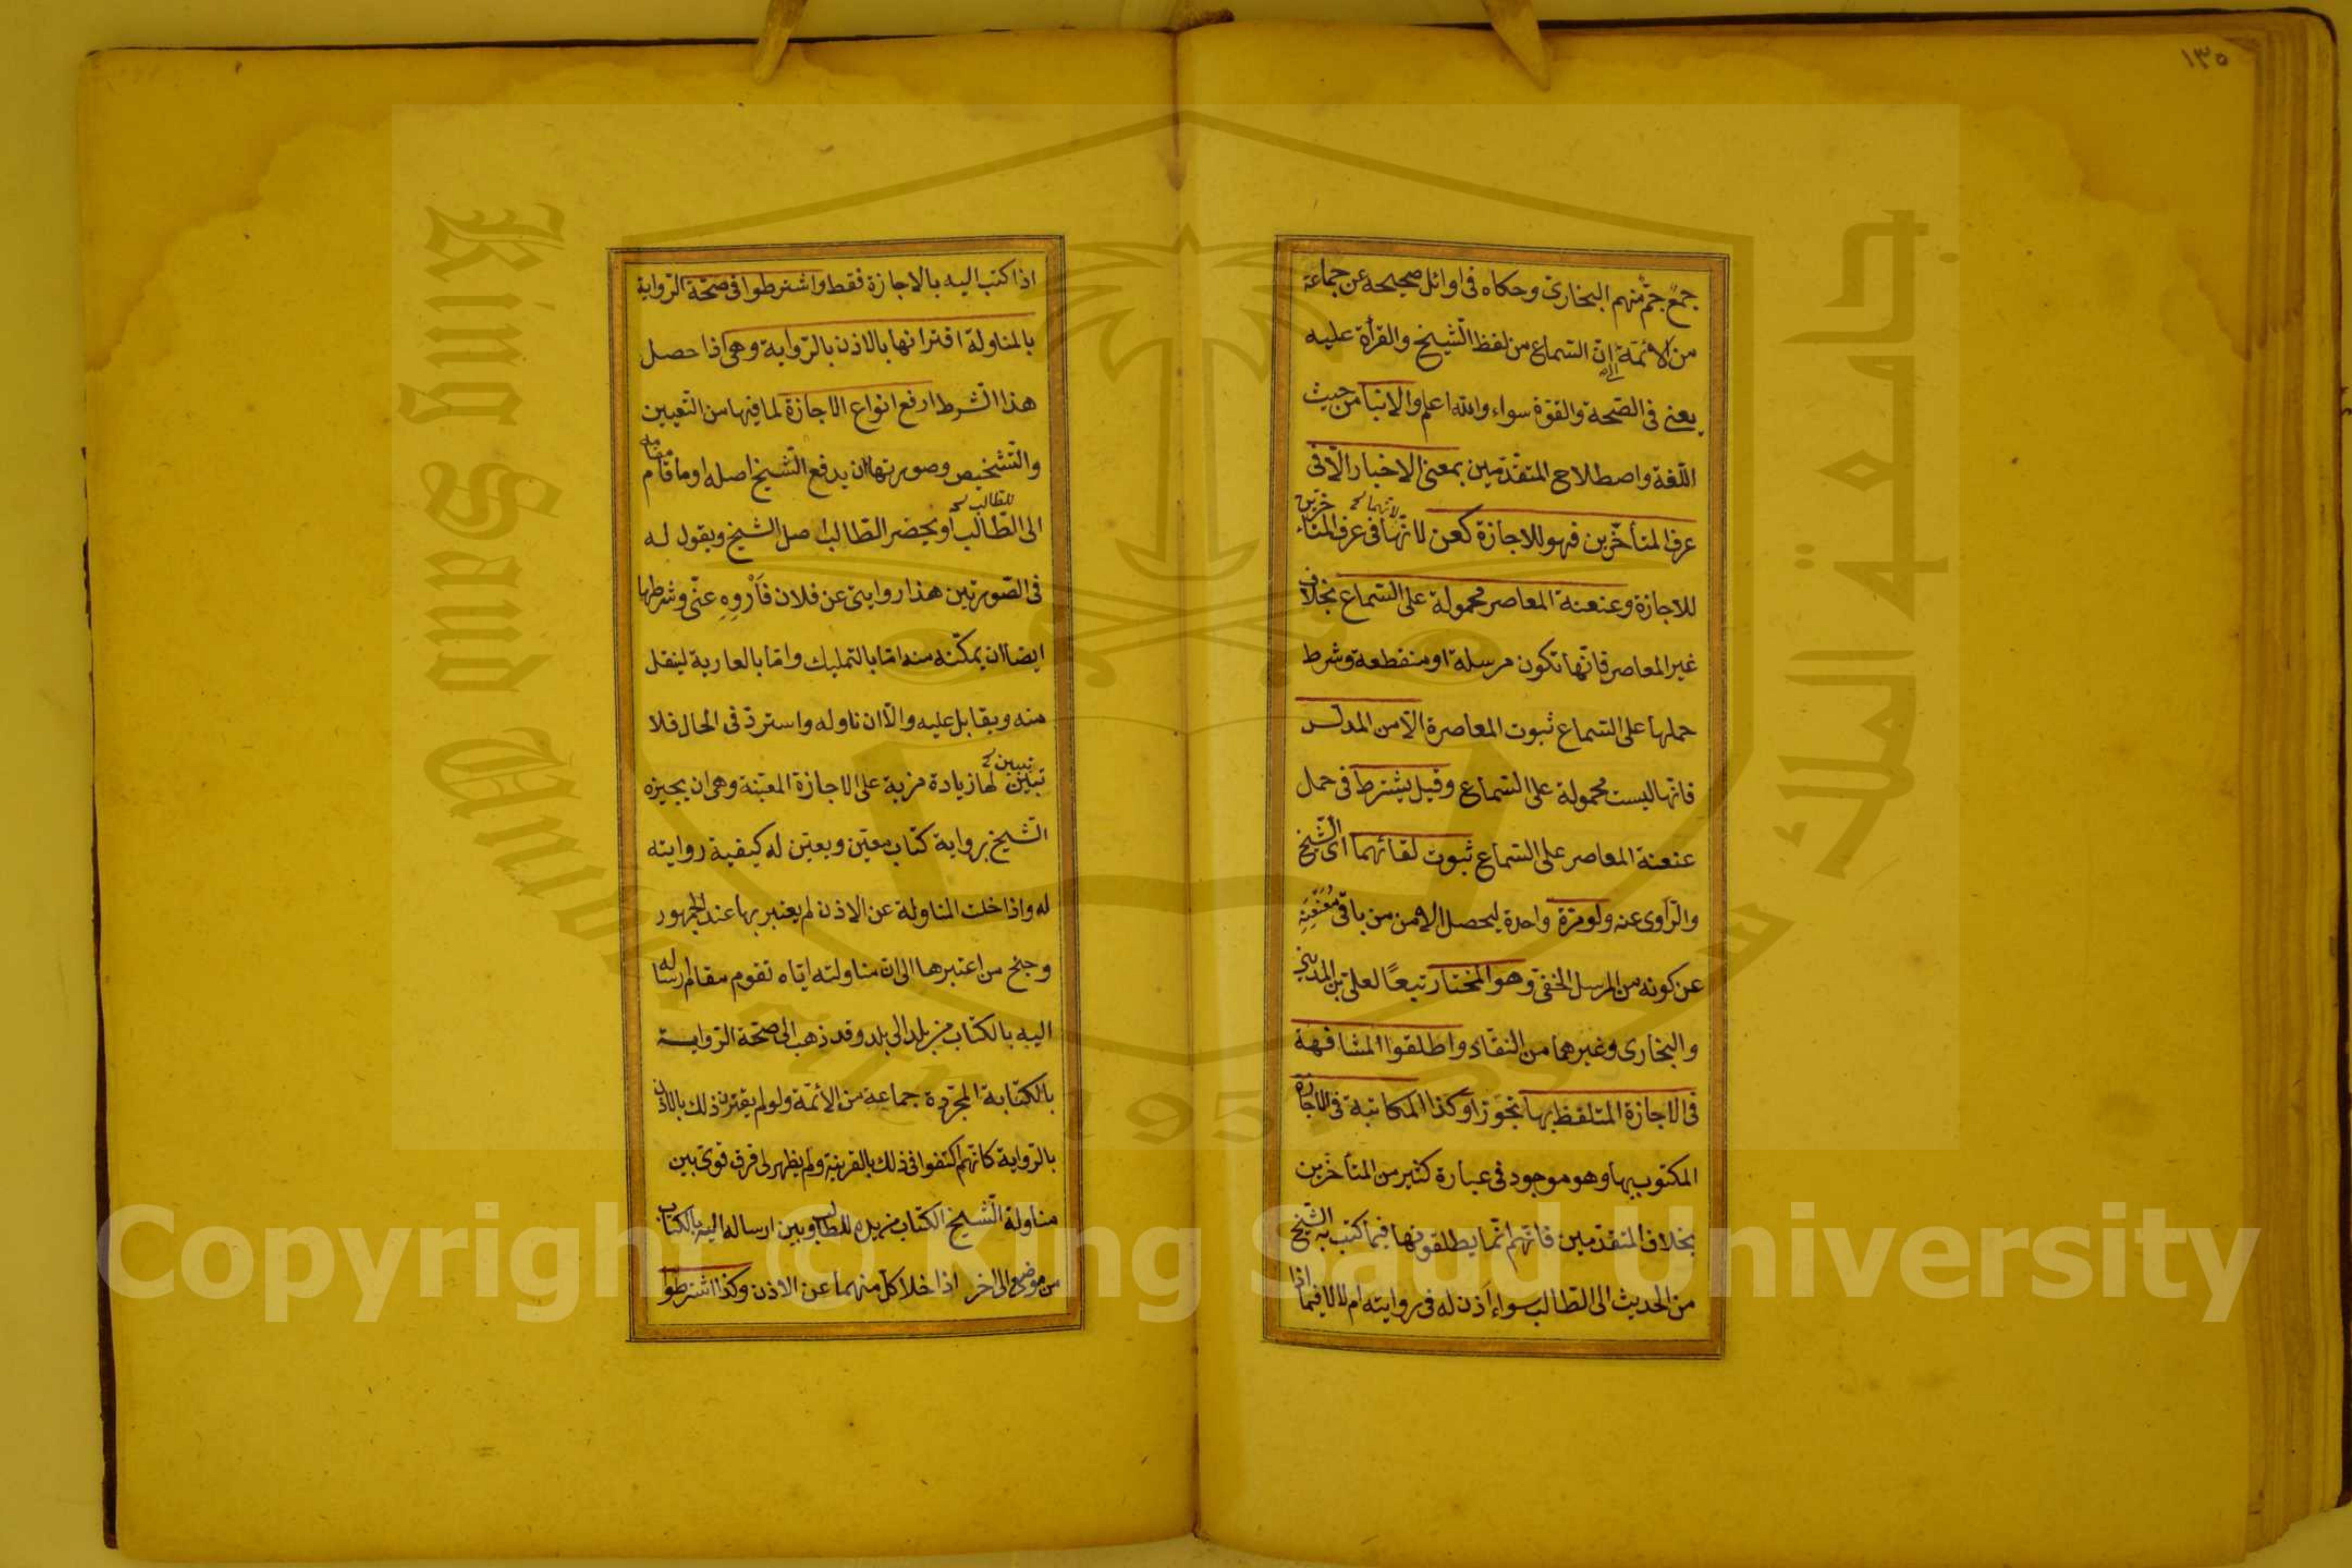 ١٣٥
جمع جم منهم البخاري وحكاه في اوائل صحيحه عن جماعة
من الائمة ان السماع من لفظ الشيخ والقرأة عليه
يعني في الصحة والقوة سواء والله اعلم والانبا من حيث
اللغة واصطلاح المتقدمين بمعنى الاخبار الا في
عرف المتأخرين فهو للاجازة كعن لانها في عرف المتأخرين
للاجازة وعنعنة المعاصر محمولة على السماع بخلاف
غير المعاصر فانها تكون مرسلة او منقطعة وشرط
حملها على السماع ثبوت المعاصرة الا من المدلس
فانها ليست محمولة على السماع وقيل يشترط في حمل
عنعنة المعاصر على السماع ثبوت لقائهما اى الشيخ
والراوى عنه ولو مرة واحدة ليحصل الامن من باقى معنعنه
عن كونه من المرسل الخفى وهو المختار تبعًا لعلى بن المدينى
والبخارى وغيرهما من النقاد واطلقوا المشافهة
فى الاجازة المتلفظ بها تجوزا وكذا المكاتبة فى الاجازة
المكتوب بها وهو موجود فى عبارة كثير من المتأخرين
بخلاف المتقدمين فانهم انما يطلقونها فيما كتب به الشيخ
من الحديث الى الطالب سواء أذن له فى روايته ام لا لا فيما اذا
اذا كتب اليه بالاجازة فقط واشترطوا فى صحة الرواية
بالمناولة اقترانها بالاذن بالرواية وهى اذا حصل
هذا الشرط ارفع انواع الاجازة لما فيها من التعيين
والتشخيص وصورتها ان يدفع الشيخ اصله او ما قام مقامه
للطالب
الى الطالب او يحضر الطالب اصل الشيخ ويقول له
فى الصورتين هذا روايتى عن فلان فَأرْوِهِ عنّى وشرطها
ايضا ان يمكنه منه اما بالتمليك واما بالعارية لينقل
منه ويقابل عليه والا ان ناوله واسترد فى الحال فلا
تبين
تبين لها زيادة مزية على الاجازة المعينة وهى ان يجيزه
الشيخ برواية كتاب معين ويعين له كيفية روايته
له واذا خلت المناولة عن الاذن لم يعتبر بها عند الجمهور
وجنح من اعتبرها الى ان مناولته اياه تقوم مقام ارساله
اليه بالكتاب من بلد الى بلد وقد ذهب الى صحة الرواية
بالكتابة المجردة جماعة من الأئمة ولو لم يقترن ذلك بالاذن
بالرواية كانهم اكتفوا فى ذلك بالقرينة ولم يظهر لى فرق قوى بين
مناولة الشيخ الكتاب من يده للطالب وبين ارساله اليه بالكتاب
من موضع الى اخر اذا خلا كل منهما عن الاذن وكذا اشترطوا
Copyright © King Saud University
King Saud University
جامعة الملك سعود
1957